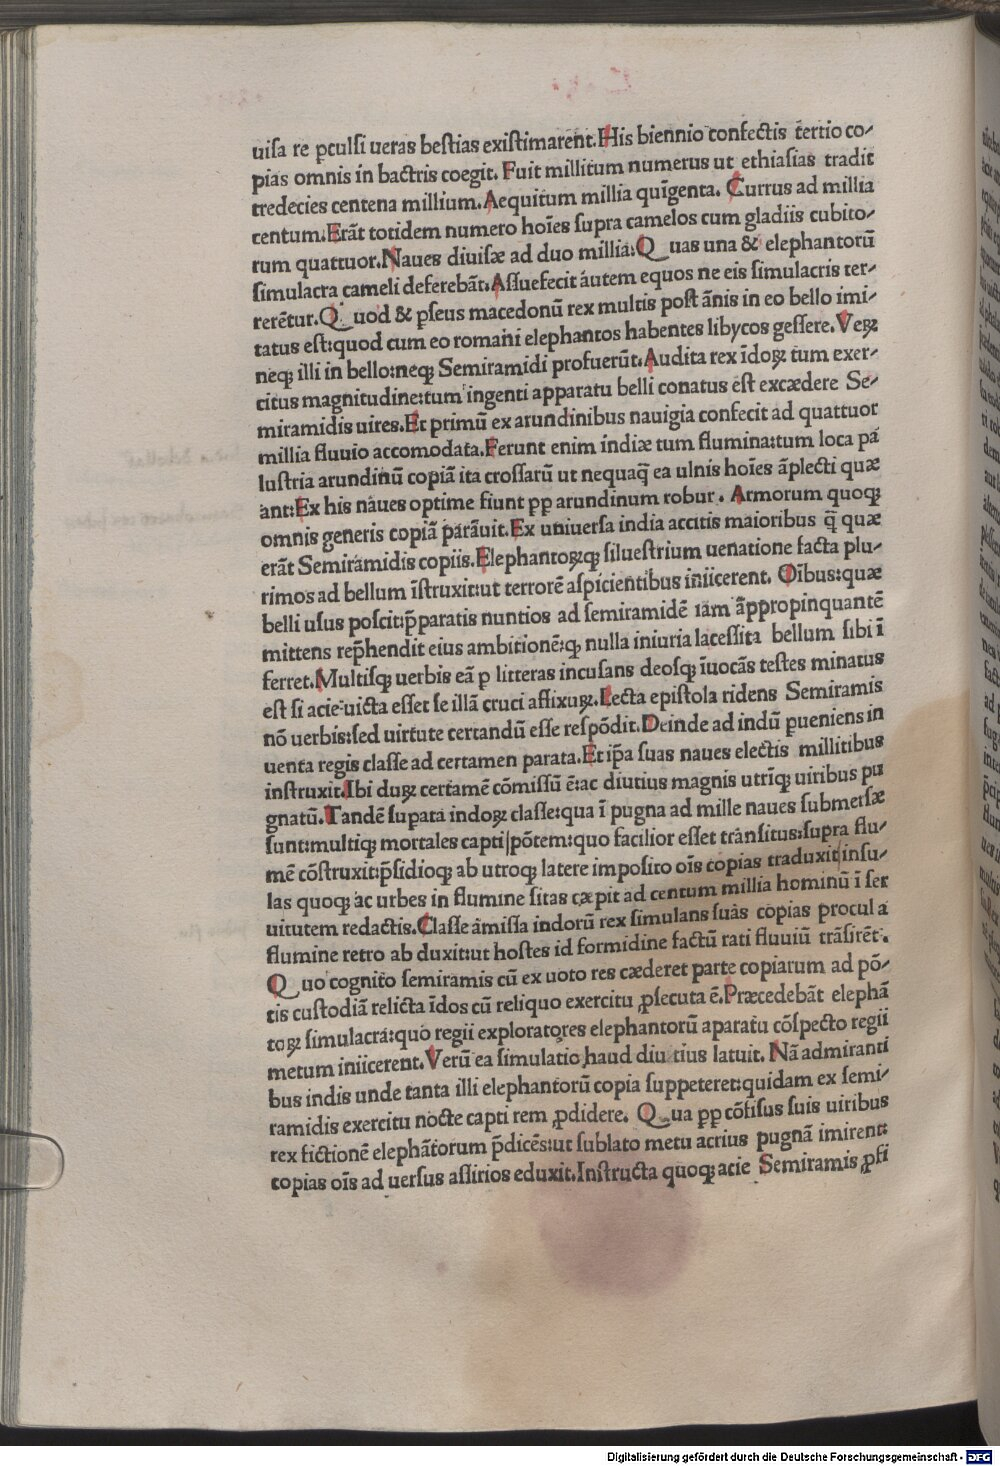 uiſa re ꝑculſi ueras beſtias exiſtimarent.His biennio confectis tertio co⸗
pias omnis in bactris coegit. Fuit millitum numerus ut ethiaſias tradit
tredecies centena millium.Aequitum millia quīgenta. Currus ad millia
centum.Erāt totidem numero hoīes ſupra camelos cum gladiis cubito⸗
rum quattuor.Naues diuiſæ ad duo millia:Quas una & elephantorū
ſimulacra cameli deferebāt.Aſſuefecit autem equos ne eis ſimulacris ter⸗
rerētur.Quod & ꝑſeus macedonū rex multis poſt ānis in eo bello imi⸗
tatus eſt:quod cum eo romani elephantos habentes libycos geſſere.Veꝝ
neqꝫ illi in bello:neqꝫ Semiramidi profuerūt.Audita rex īdoꝝ tum exer⸗
citus magnitudine:tum ingenti apparatu belli conatus eſt excædere Se⸗
miramidis uires.Et primū ex arundinibus nauigia confecit ad quattuor
millia fluuio accomodata.Ferunt enim indiæ tum flumina:tum loca pa
luſtria arundinū copiā ita croſſarū ut nequaq̄ ea ulnis hoīes āplecti quæ
ant:Ex his naues optime fiunt pp arundinum robur. Armorum quoqꝫ
omnis generis copiā parauit.Ex uniuerſa india accitis maioribus q̄ quæ
erāt Semiramidis copiis.Elephantoꝝqꝫ ſilueſtrium uenatione facta plu⸗
rimos ad bellum īſtruxit:ut terrorē aſpicientibus iniicerent. Oībus:quæ
belli uſus poſcit:p̄paratis nuntios ad ſemiramidē iam āppropinquantē
mittens rep̄hendit eius ambitionē:qꝫ nulla iniuria laceſſita bellum ſibi ī
ferret.Multiſqꝫ uerbis eā ꝑ litteras incuſans deoſqꝫ īuocās teſtes minatus
eſt ſi acie uicta eſſet ſe illā cruci affixuꝝ.Lecta epiſtola ridens Semiramis
nō uerbis:ſed uirtute certandū eſſe reſpōdit.Deinde ad indū ꝑueniens in
uenta regis claſſe ad certamen parata.Et ip̄a ſuas naues electis millitibus
inſtruxit.Ibi duꝝ certamē cōmiſſū ē:ac diutius magnis utrīqꝫ uiribus pu
gnatū.Tandē ſuꝑata indoꝝ claſſe:qua ī pugna ad mille naues ſubmerſæ
ſunt:multiqꝫ mortales capti|pōtem:quo facilior eſſet tranſitus:ſupra flu⸗
mē cōſtruxit:p̄ſidioqꝫ ab utroqꝫ latere impoſito oīs copias traduxit|inſu⸗
las quoqꝫ ac urbes in flumine ſitas cæpit ad centum millia hominū ī ſer
uitutem redactis.Claſſe amiſſa indorū rex ſimulans ſuas copias procul a
flumine retro ab duxit:ut hoſtes id formidine factū rati fluuiū trāſirēt.
Quo cognito ſemiramis cū ex uoto res cæderet parte copiarum ad pō⸗
tis cuſtodiā relicta īdos cū reliquo exercitu ꝓſecuta ē.Præcedebāt elephā
toꝝ ſimulacra:quo regii exploratores elephantorū aparatu cōſpecto regii
metum iniicerent.Verū ea ſimulatio haud diu tius latuit. Nā admiranti
bus indis unde tanta illi elephantorū copia ſuppeteret:quidam ex ſemi⸗
ramidis exercitu nocte capti rem ꝓdidere. Qua pp cōfiſus ſuis uiribus
rex fictionē elephātorum p̄dicēs:ut ſublato metu acrius pugnā imirent:
copias oīs ad uerſus aſſirios eduxit.Inſtructa quoqꝫ acie Semiramis ꝓſi
Digitalisierung gefördert durch die Deutsche Forschungsgemeinschaft - DFG